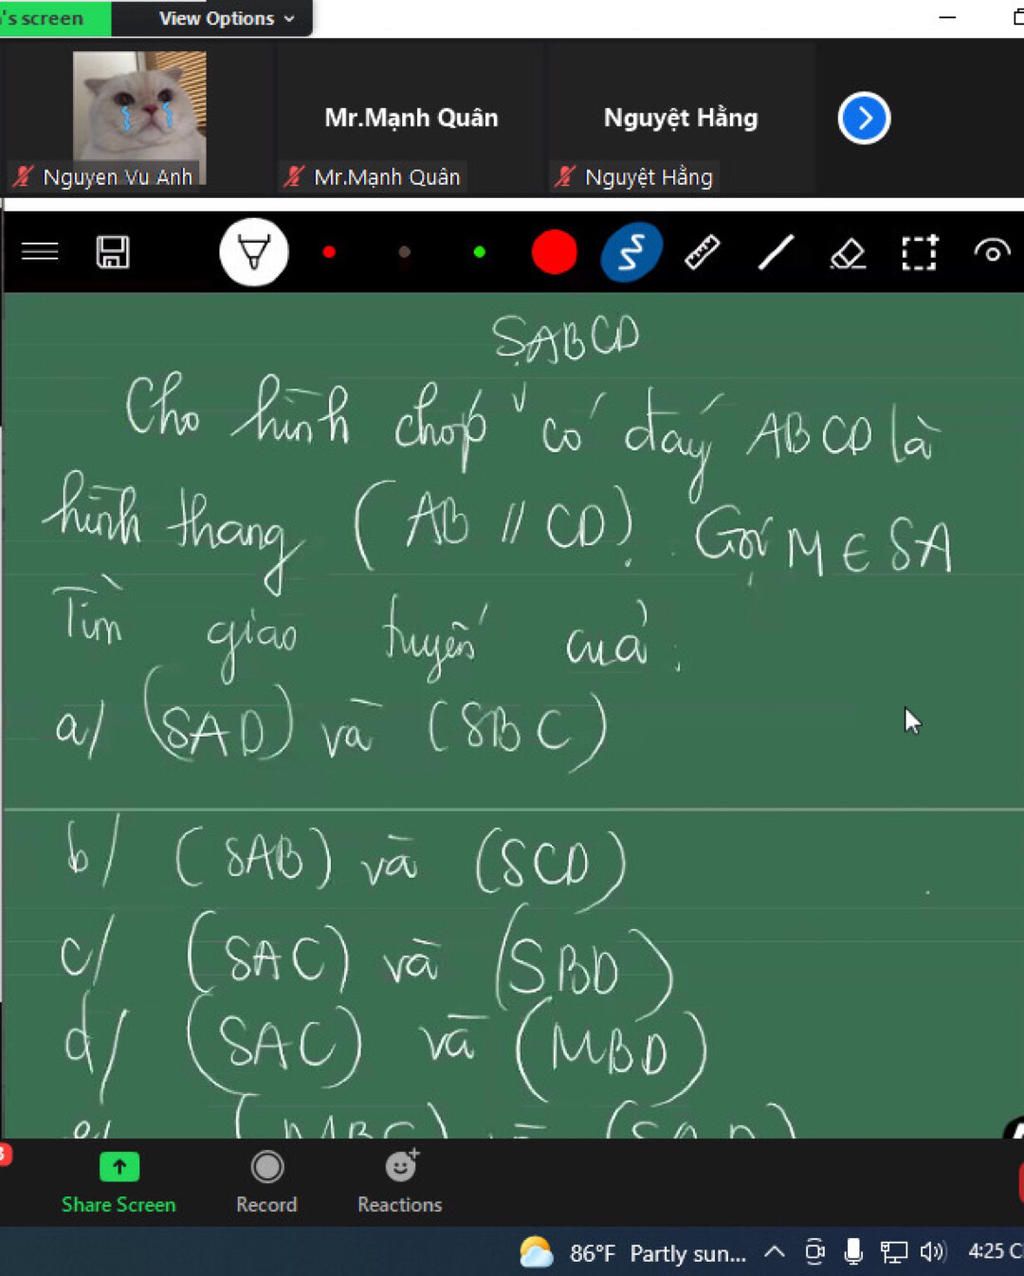 's screen View Options
Mr.Mạnh Quân Nguyệt Hằng
Nguyen Vu Anh Mr.Mạnh Quân Nguyệt Hằng
S.ABCD
Cho hình chóp có đáy ABCD là
hình thang (AB // CD). Gọi M ∈ SA
Tìm giao tuyến của:
a/ (SAD) và (SBC)
b/ (SAB) và (SCD)
c/ (SAC) và (SBD)
d/ (SAC) và (MBD)
e/ (MBC) và (SAD)
Share Screen Record Reactions
86°F Partly sun... 4:25 C